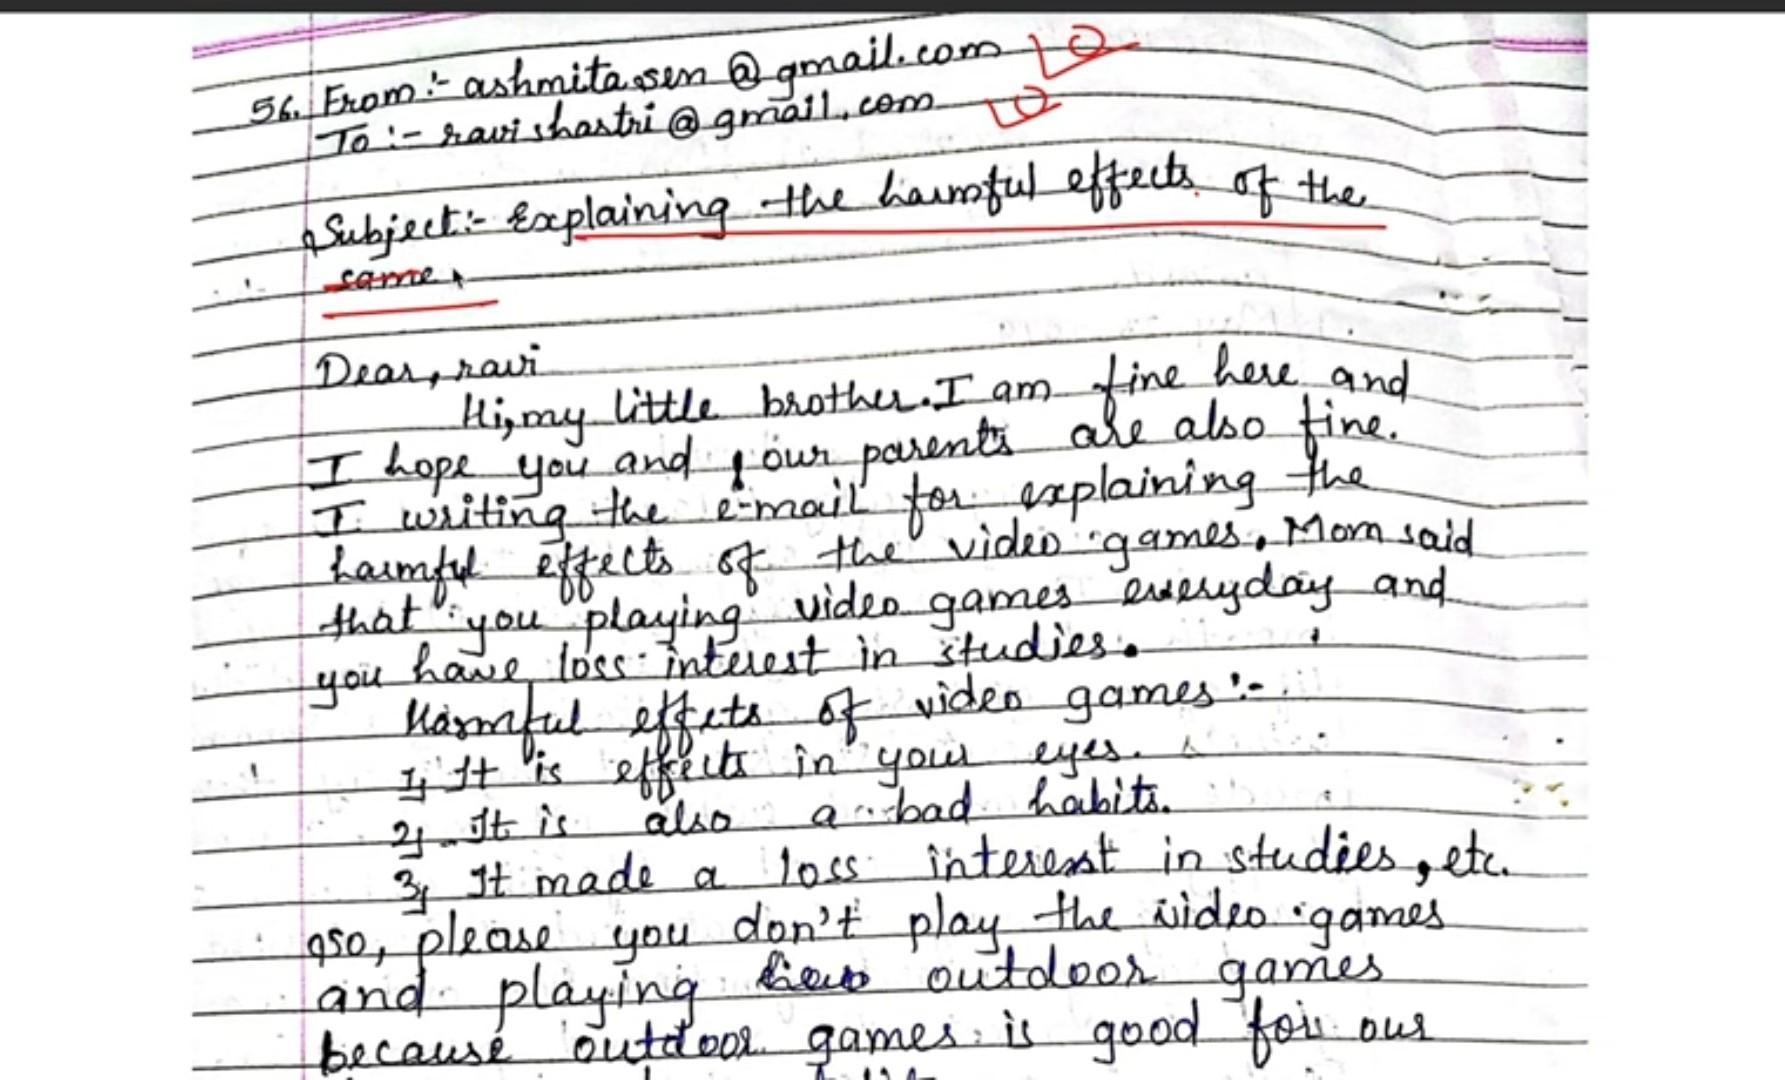 56. From:- ashmita.sen@gmail.com
To :- ravishastri@gmail.com
Subject:- Explaining the harmful effects of the
same.
Dear, ravi
Hi, my little brother. I am fine here and
I hope you and our parents are also fine.
I writing the e-mail for explaining the
harmful effects of the video games. Mom said
that you playing video games everyday and
you have loss interest in studies.
Harmful effets of video games :-
1) It is effects in your eyes.
2) It is also a bad habits.
3) It made a loss interest in studies, etc.
so, please you don't play the video games
and playing outdoor games
because outdoor games is good for our